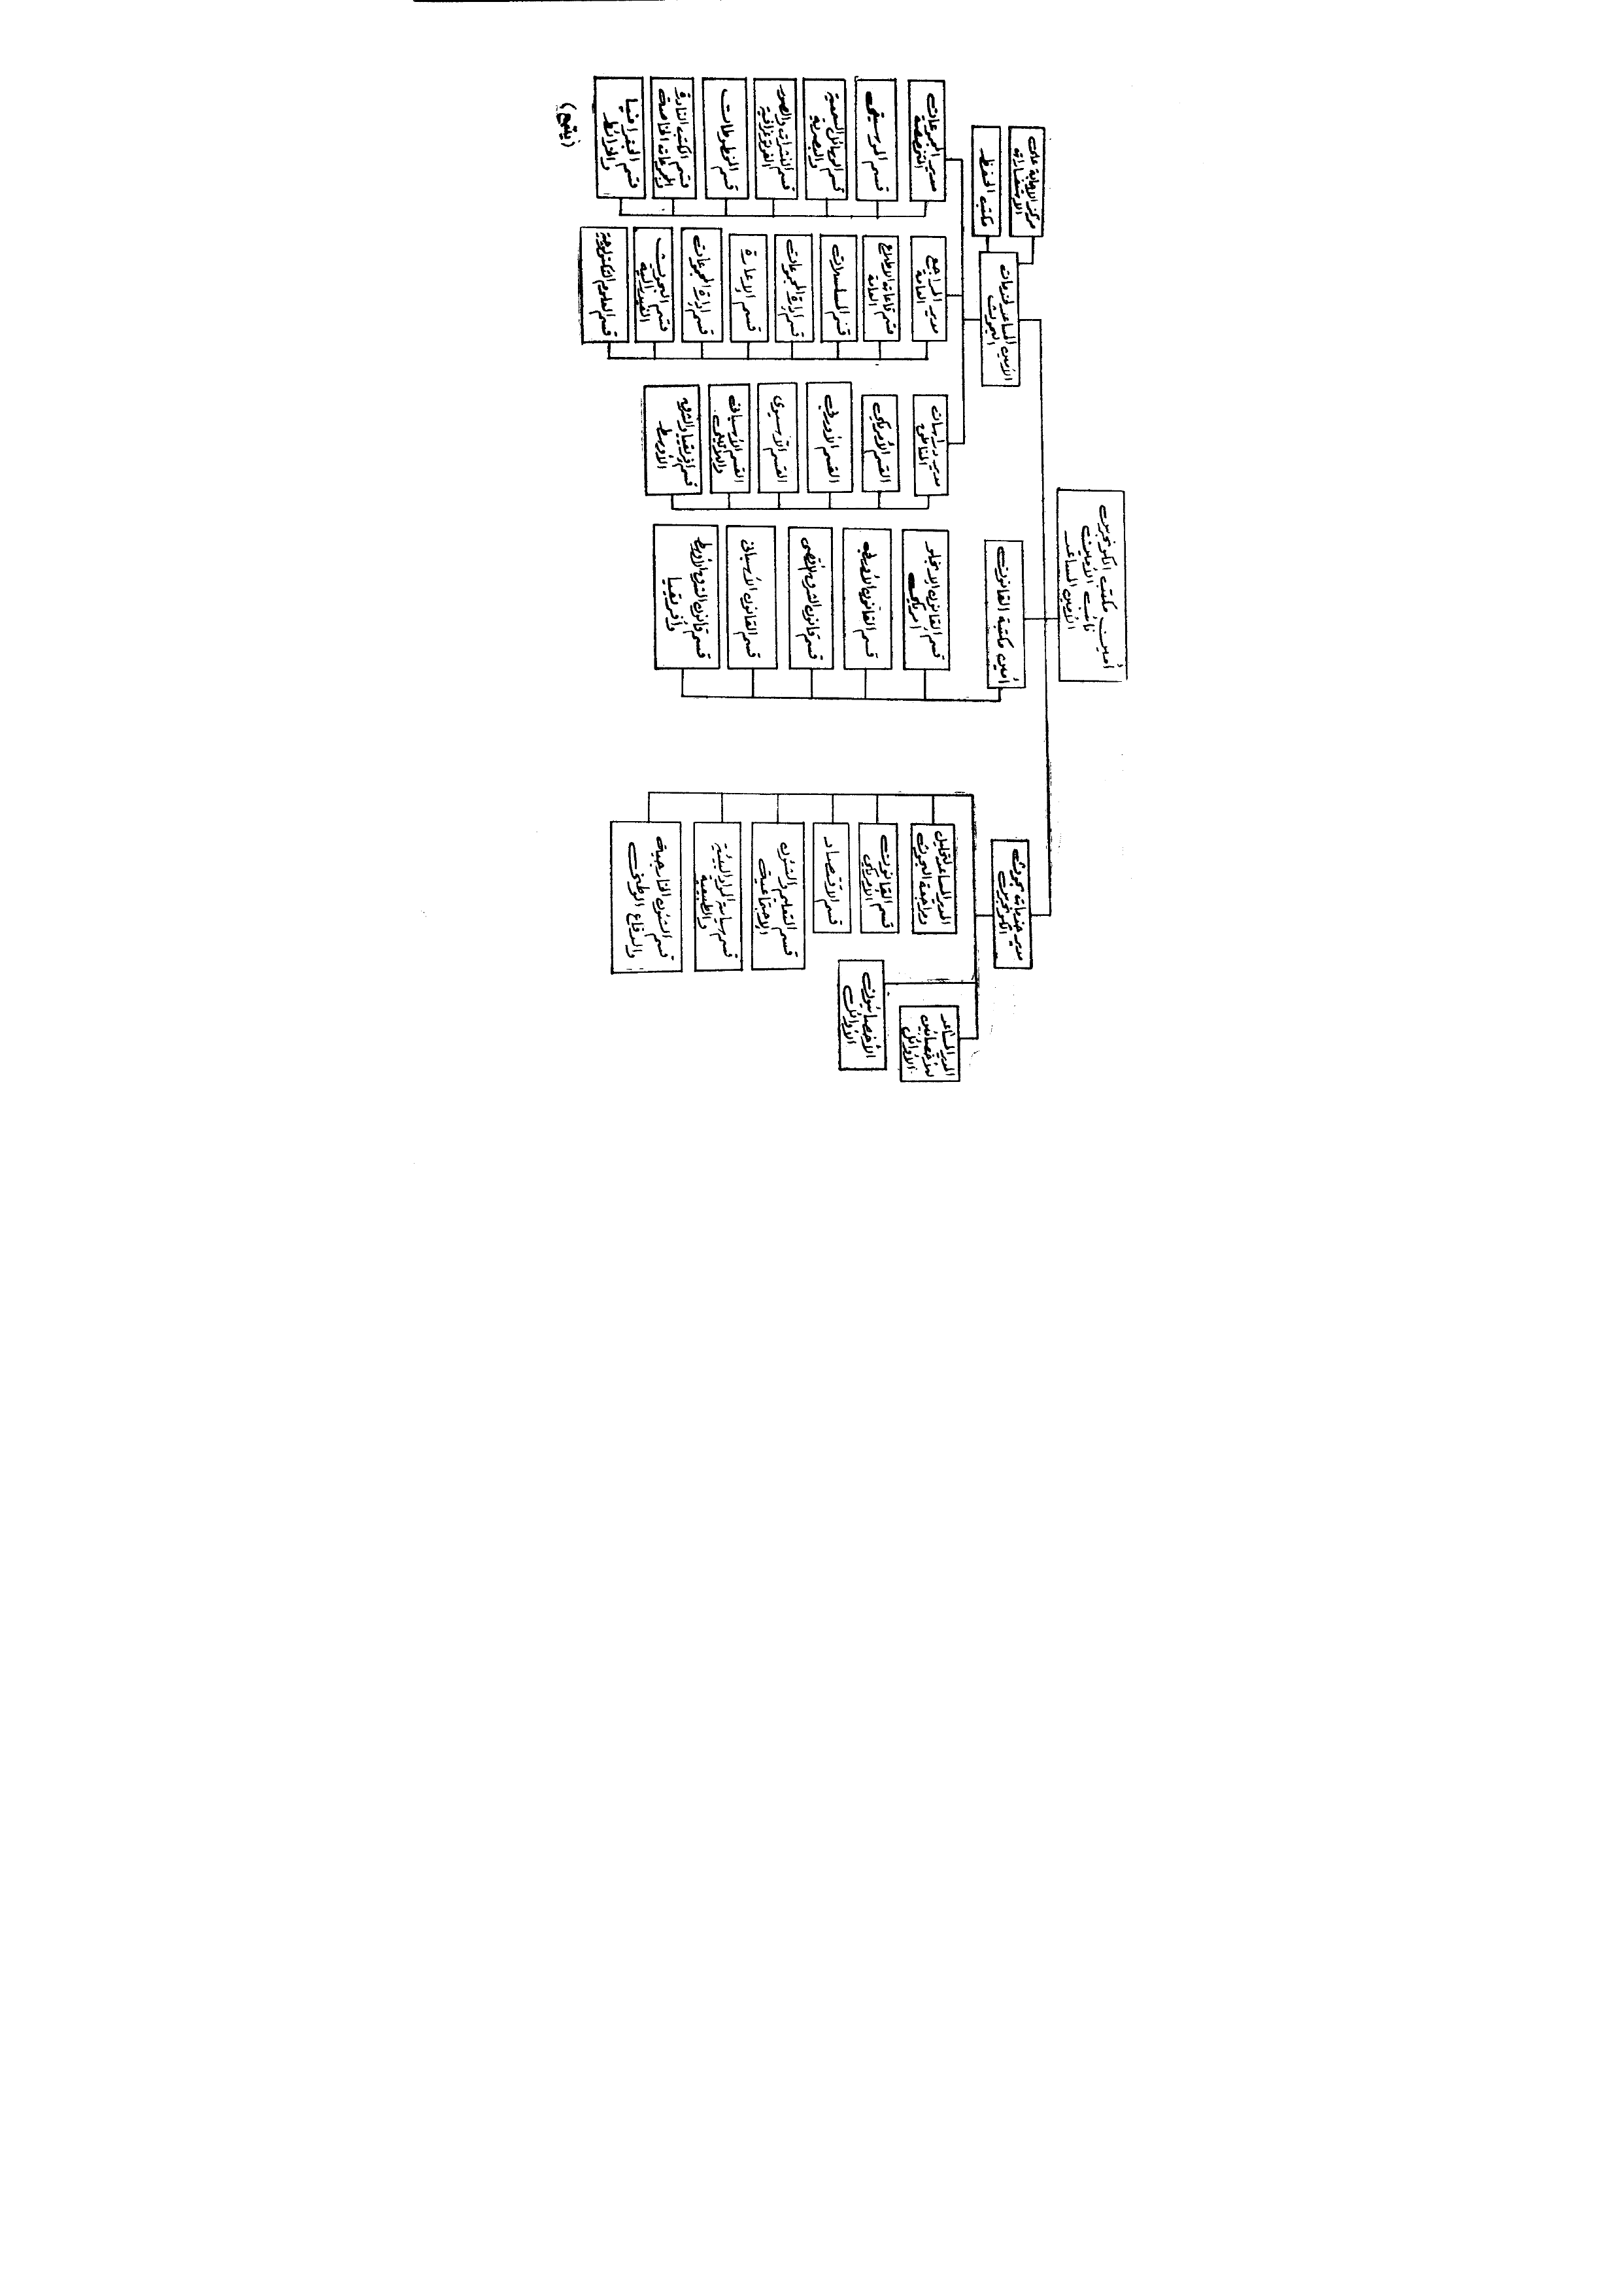 أمين مكتبة الكونجرس
نائب الأمين
الأمين المساعد
مدير خدمات بحوث
الكونجرس
أمين مكتبة القانون
الأمين المساعد لخدمات
البحوث
مركز الإجابة على
الاستفسارات
مكتب الحفظ
المدير المساعد
للأخصائيين
الأوائل
الأخصائيون
الأوائل
المدير المساعد لتحليل
ومراجعة البحوث
قسم القانون
الأمريكى
قسم الاقتصاد
قسم التعليم والشئون
الاجتماعية
قسم سياسة الموارد البيئية
والطبيعية
قسم الشئون الخارجية
والدفاع الوطنى
قسم القانون الانجلو
أمريكى
قسم القانون الأوربى
قسم قانون الشرق الأقصى
قسم القانون الأسبانى
قسم قانون الشرق الأوسط
وأفريقيا
مدير دراسات
المناطق
القسم الأمريكى
القسم الأوربى
القسم الآسيوى
القسم الأسبانى
والبرتغالى
قسم أفريقيا والشرق
الأوسط
مدير المراجع
العامة
قسم قاعات الاطلاع
العامة
قسم المسلسلات
قسم إدارة المجموعات
قسم الإعارة
قسم إدارة المجموعات
قسم البحوث
الفيدرالية
قسم العلوم التكنولوجية
مدير المجموعات
المتخصصة
قسم الموسيقى
قسم الوسائل السمعية
والبصرية
قسم النشرات والصور
الفوتوغرافية
قسم المخطوطات
قسم الكتب النادرة
والمجموعات الخاصة
قسم الجغرافيا
والخرائط
(يتبع)